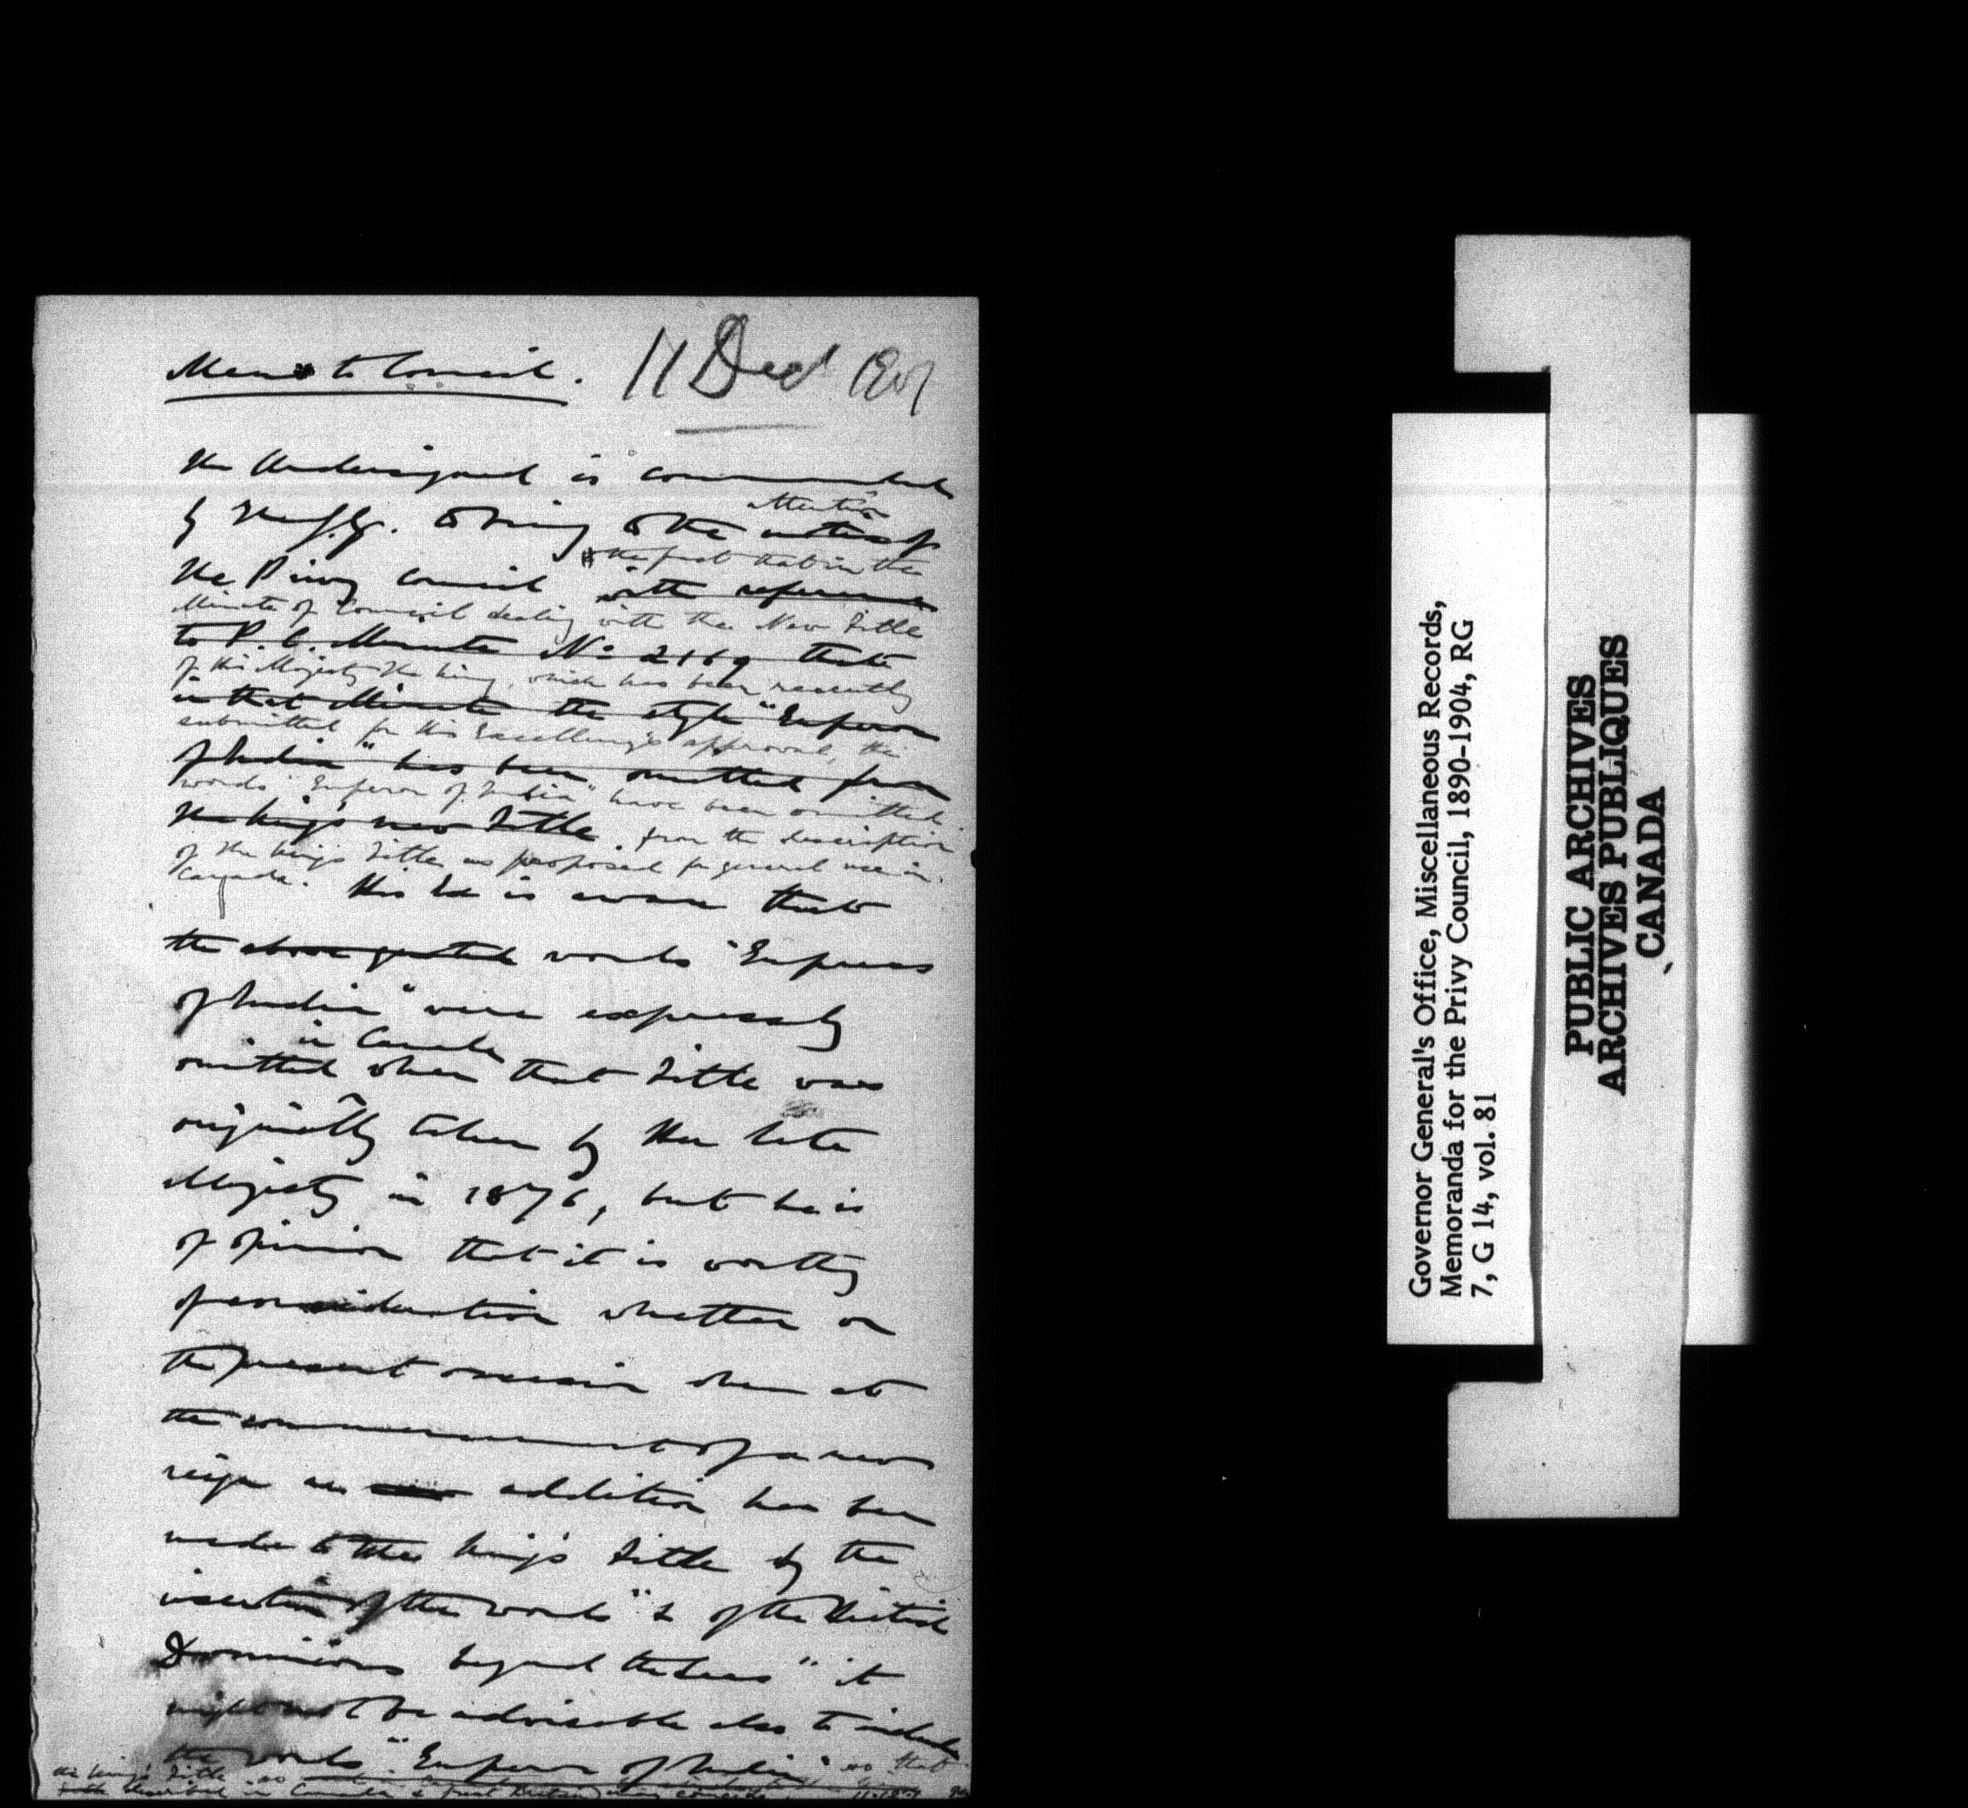 Memo to Council. 11 Decr 1901
The Undersigned is commanded
attention
by His Ex. to bring to the notice of
the fact that in the
the Privy Council with reference
Minute of Council dealing with the New Title
to P. C. Minute No 2169 that
of His Majesty the King, which has been recently
in that Minute the style "Emperor
submitted for His Excellency's approval, the
of India" has been omitted from
words "Emperor of India" have been omitted
the King's new Title. from the description
of the King's Title as proposed for general use in
Canada. His Ex is aware that
the above quoted words "Empress
of India" were expressly
in Canada
omitted when that Title was
originally taken by Her late
Majesty in 1876, but he is
of opinion that it is worthy
of consideration whether on
the present occasion when at
the commencement of a new
reign an addition has been
made to the King's Title by the
insertion of the words "& of the British
Dominions beyond the Seas" it
might not be advisable also to include
the words "Emperor of India" so that
the King's Title as
both described in Canada & Great Britain may coincide
Governor General's Office, Miscellaneous Records,
Memoranda for the Privy Council, 1890-1904, RG
7, G 14, vol. 81
PUBLIC ARCHIVES
ARCHIVES PUBLIQUES
CANADA